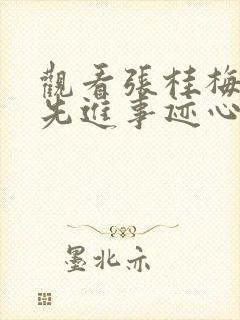 觀看張桂梅
先進事迹心
墨北亦